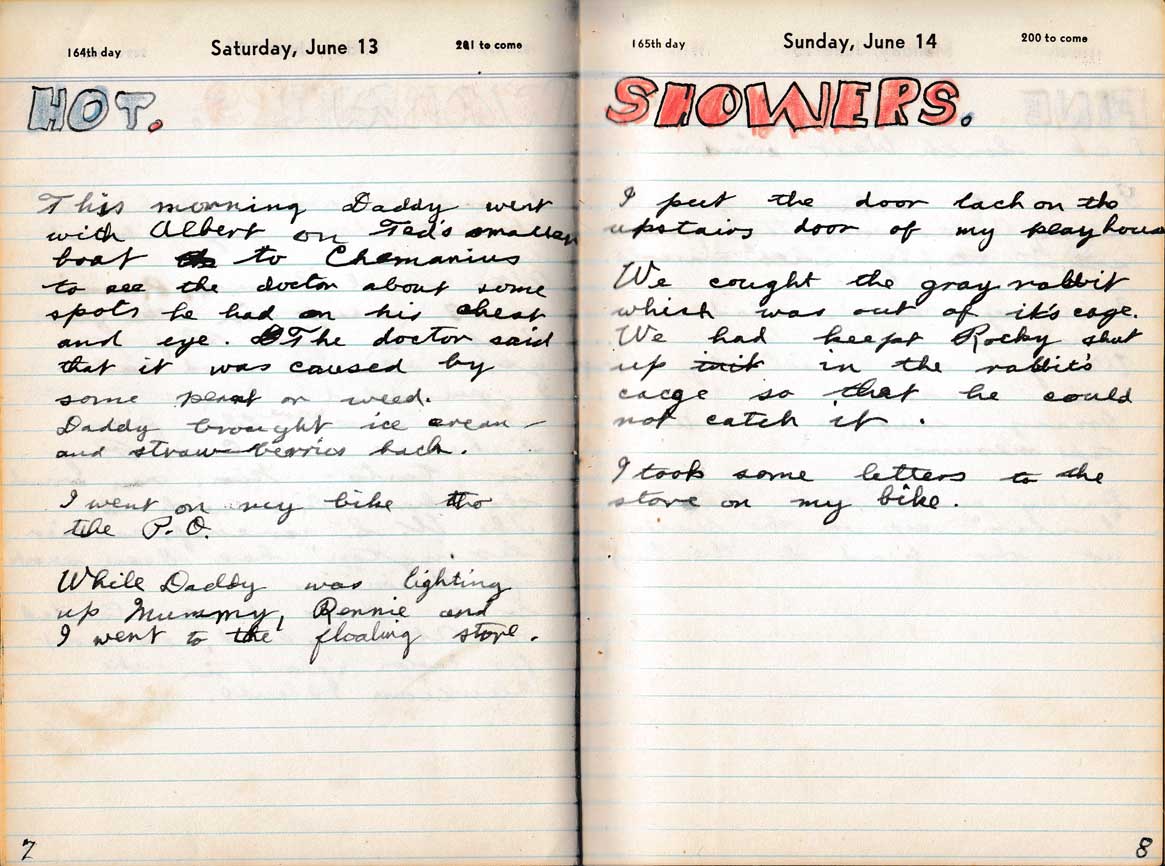 164th day Saturday, June 13 201 to come
HOT.
This morning Daddy went
with Albert on Ted's smaller
boat to Chemanius
to see the doctor about some
spots he had on his chest
and eye. The doctor said
that it was caused by
some or weed.
Daddy brought ice cream
and strawberries back.
I went on my bike to
the P.O.
While Daddy was lighting
up Mummy, Rennie and
I went to the floating store.
7
165th day Sunday, June 14 200 to come
SHOWERS.
I put the door lach on the
upstairs door of my playhouse
We cought the gray rabbit
which was out of it's cage.
We had keept Rocky shut
up in the rabbit's
cacge so that he could
not catch it.
I took some letters to the
store on my bike.
8